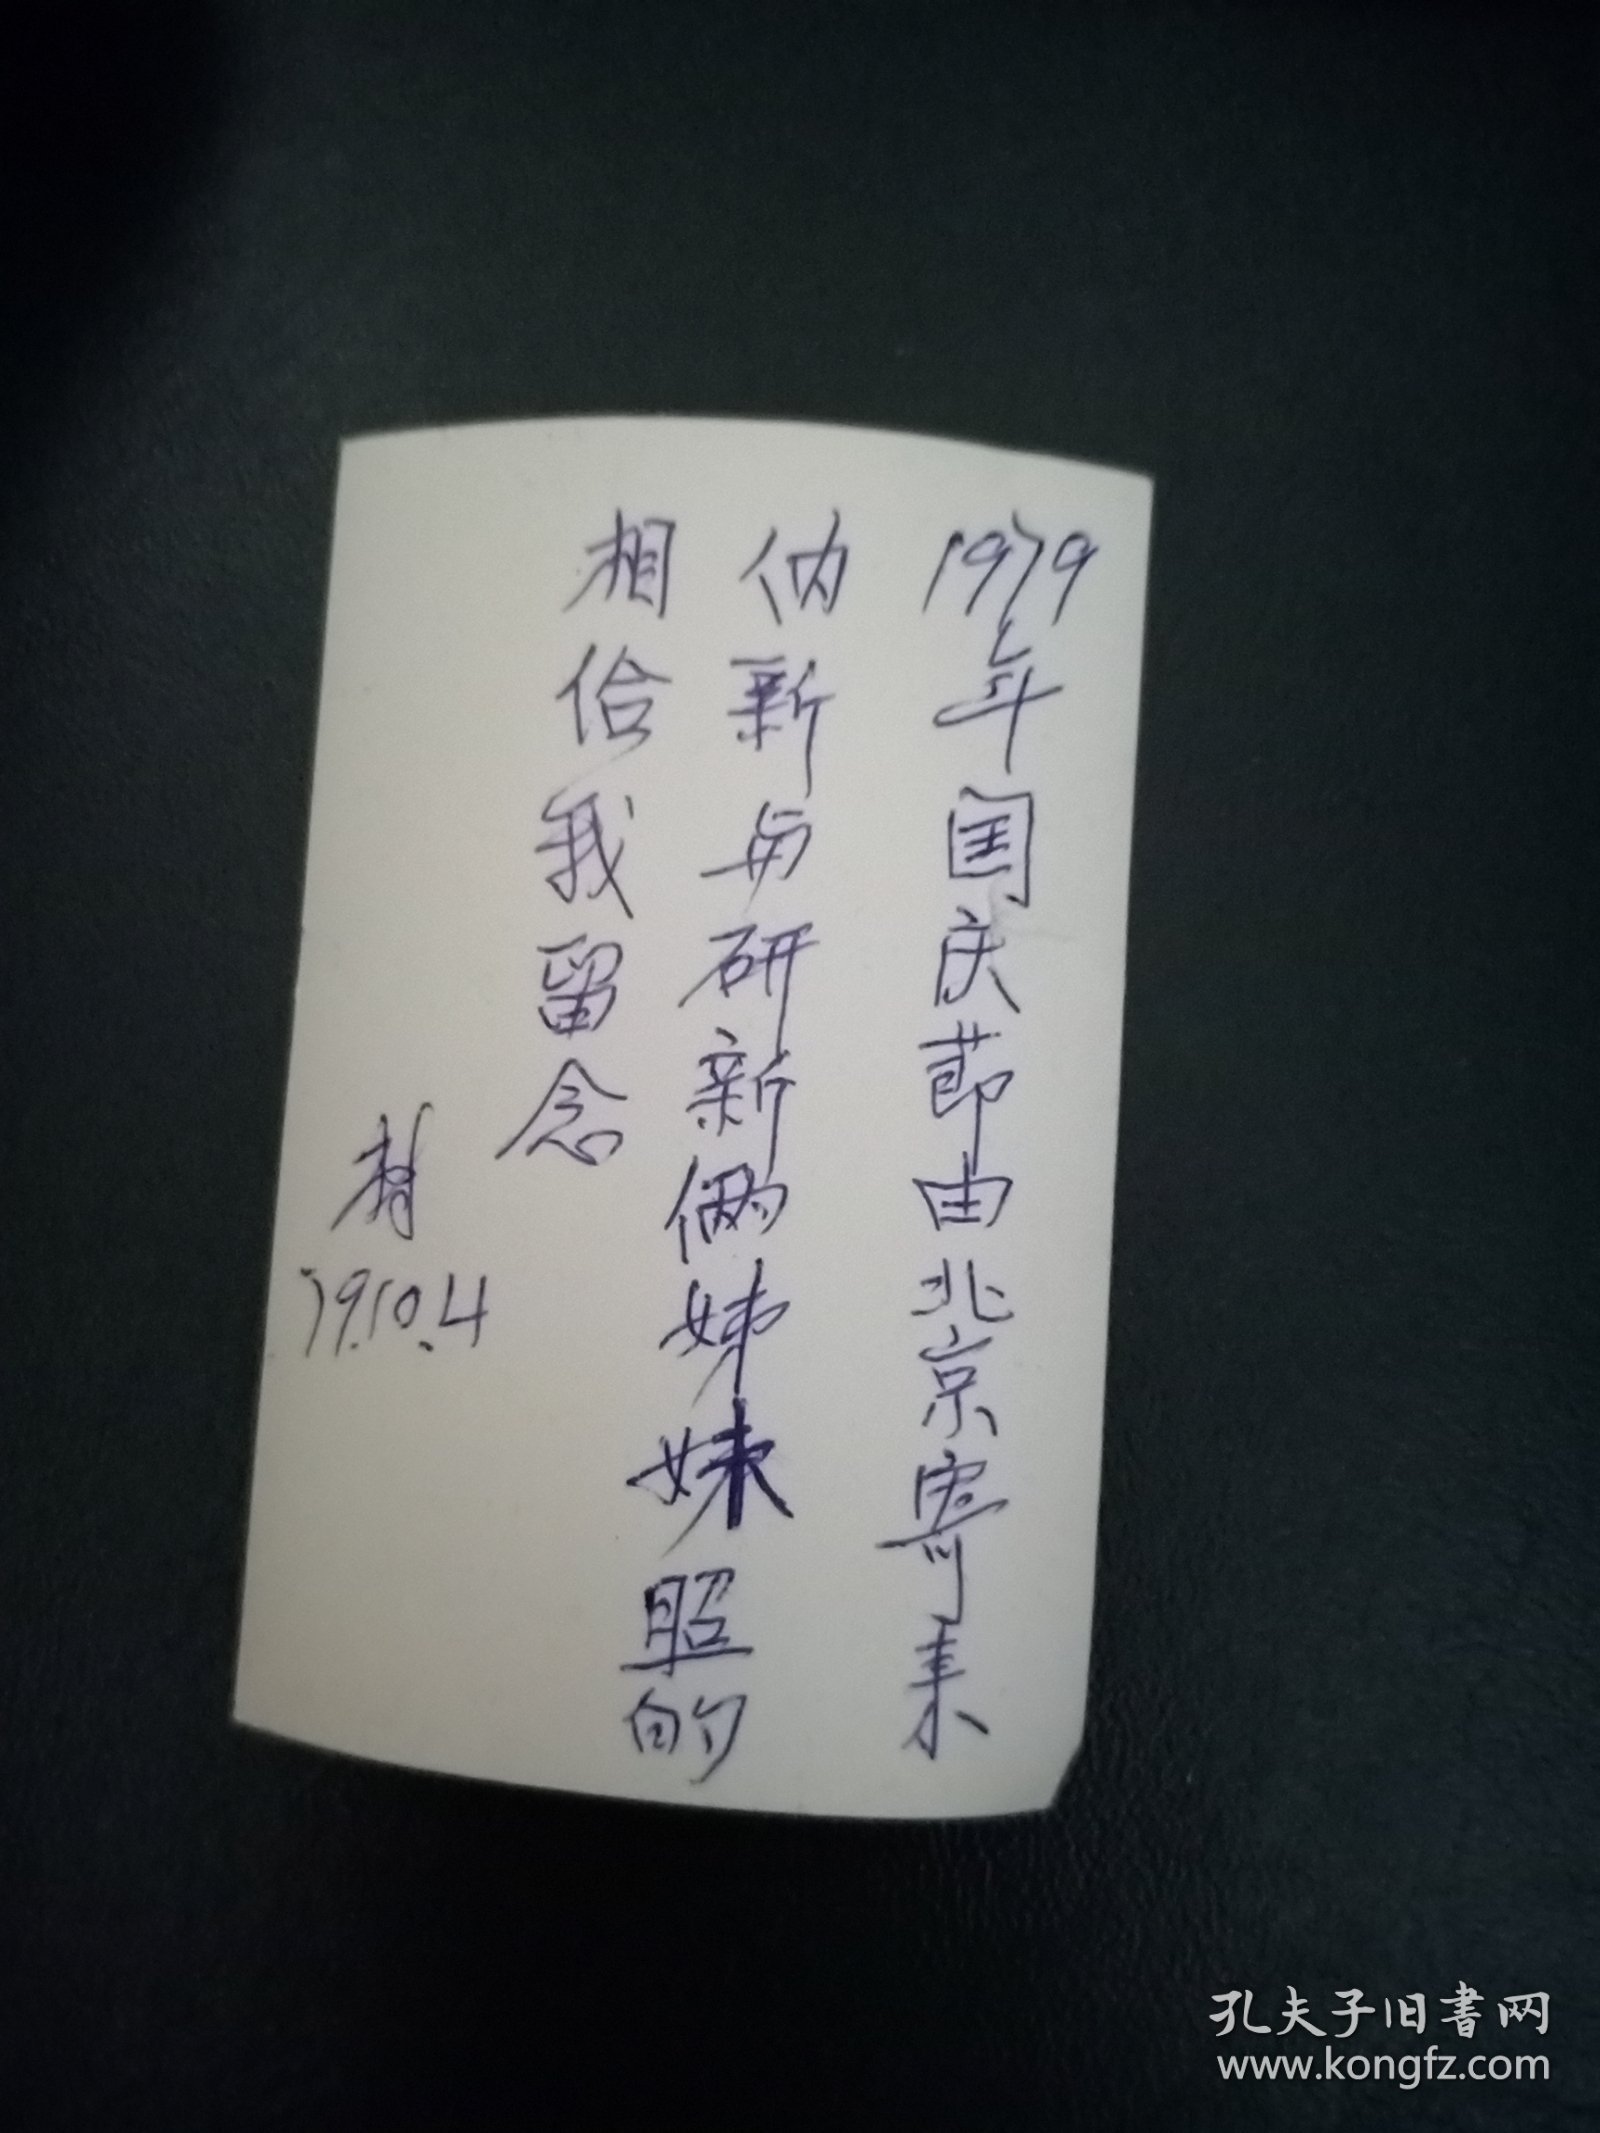 1979年国庆节由北京寄来
新与研新俩姊妹照的
相给我留念
79.10.4
孔夫子旧书网
www.kongfz.com